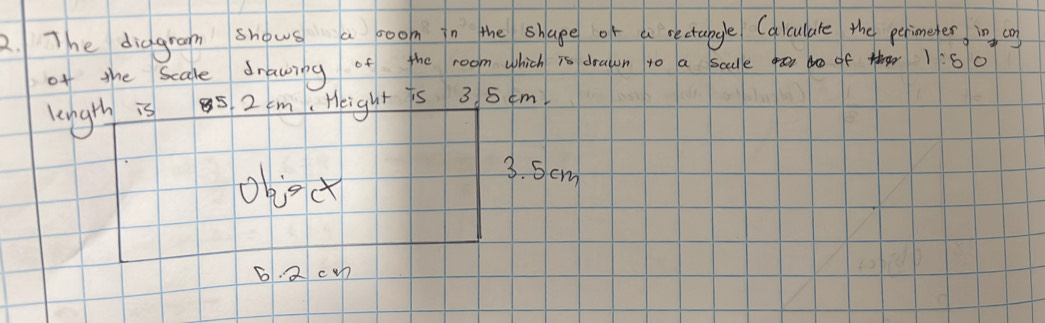 2. The diagram shows a room in the shape of a rectangle. Calculate the perimeter, in cm
of the scale drawing of the room which is drawn to a scale of 1:50
length is 5.2 cm. Height is 3.5 cm.
Object
3.5cm
5.2 cm